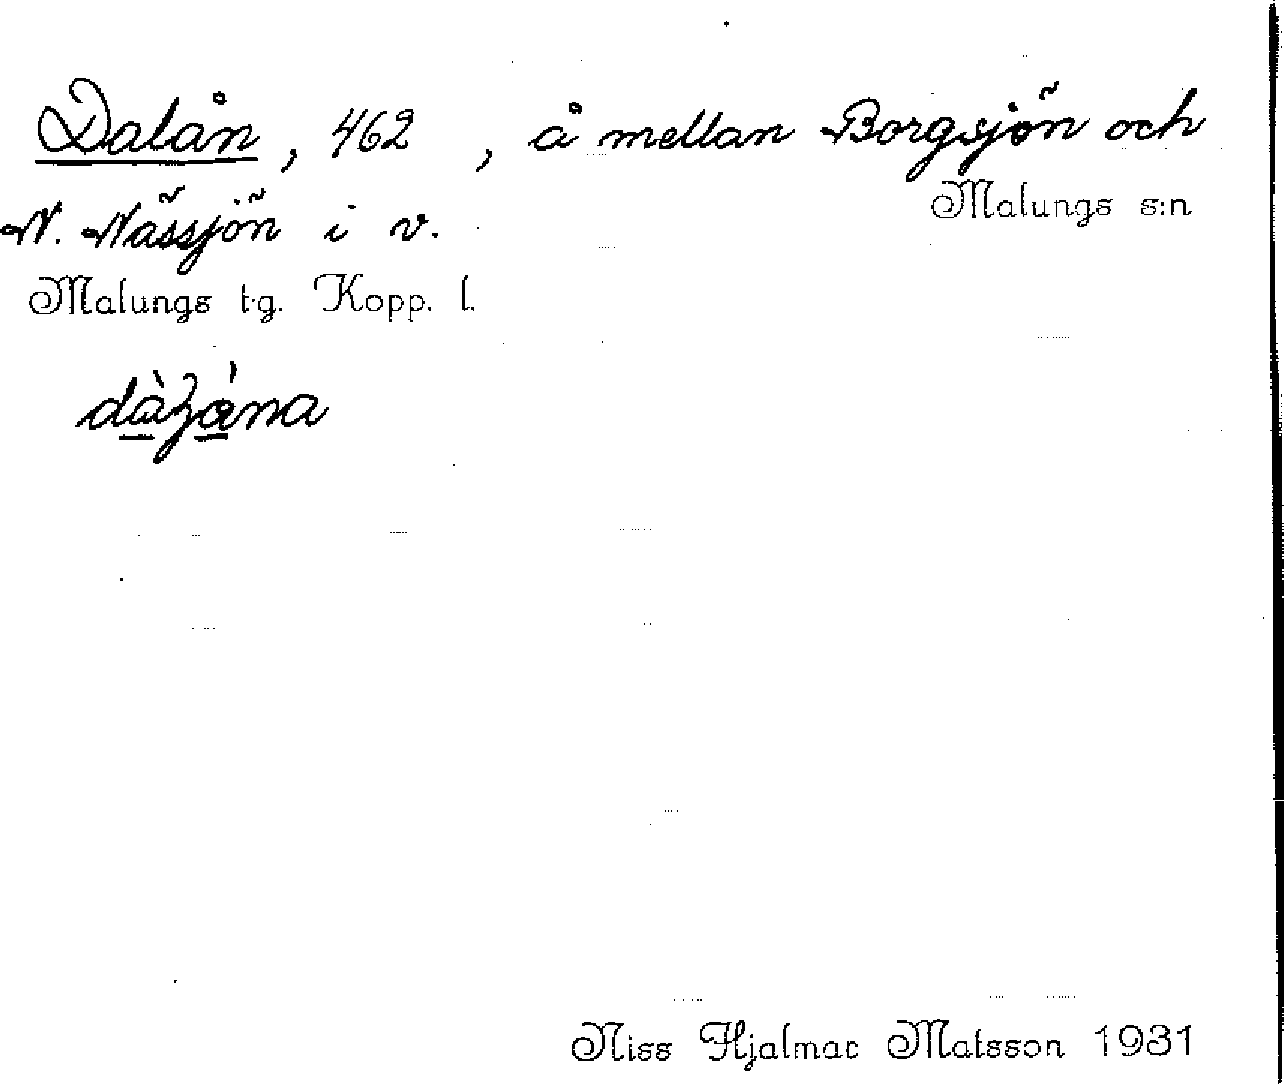 Dalån, 462 , å mellan Borgsjön och
N. Nässjön i v.
Malungs s:n
Malungs t.g. Kopp. l.
dàɀána
Niss Hjalmar Matsson 1931